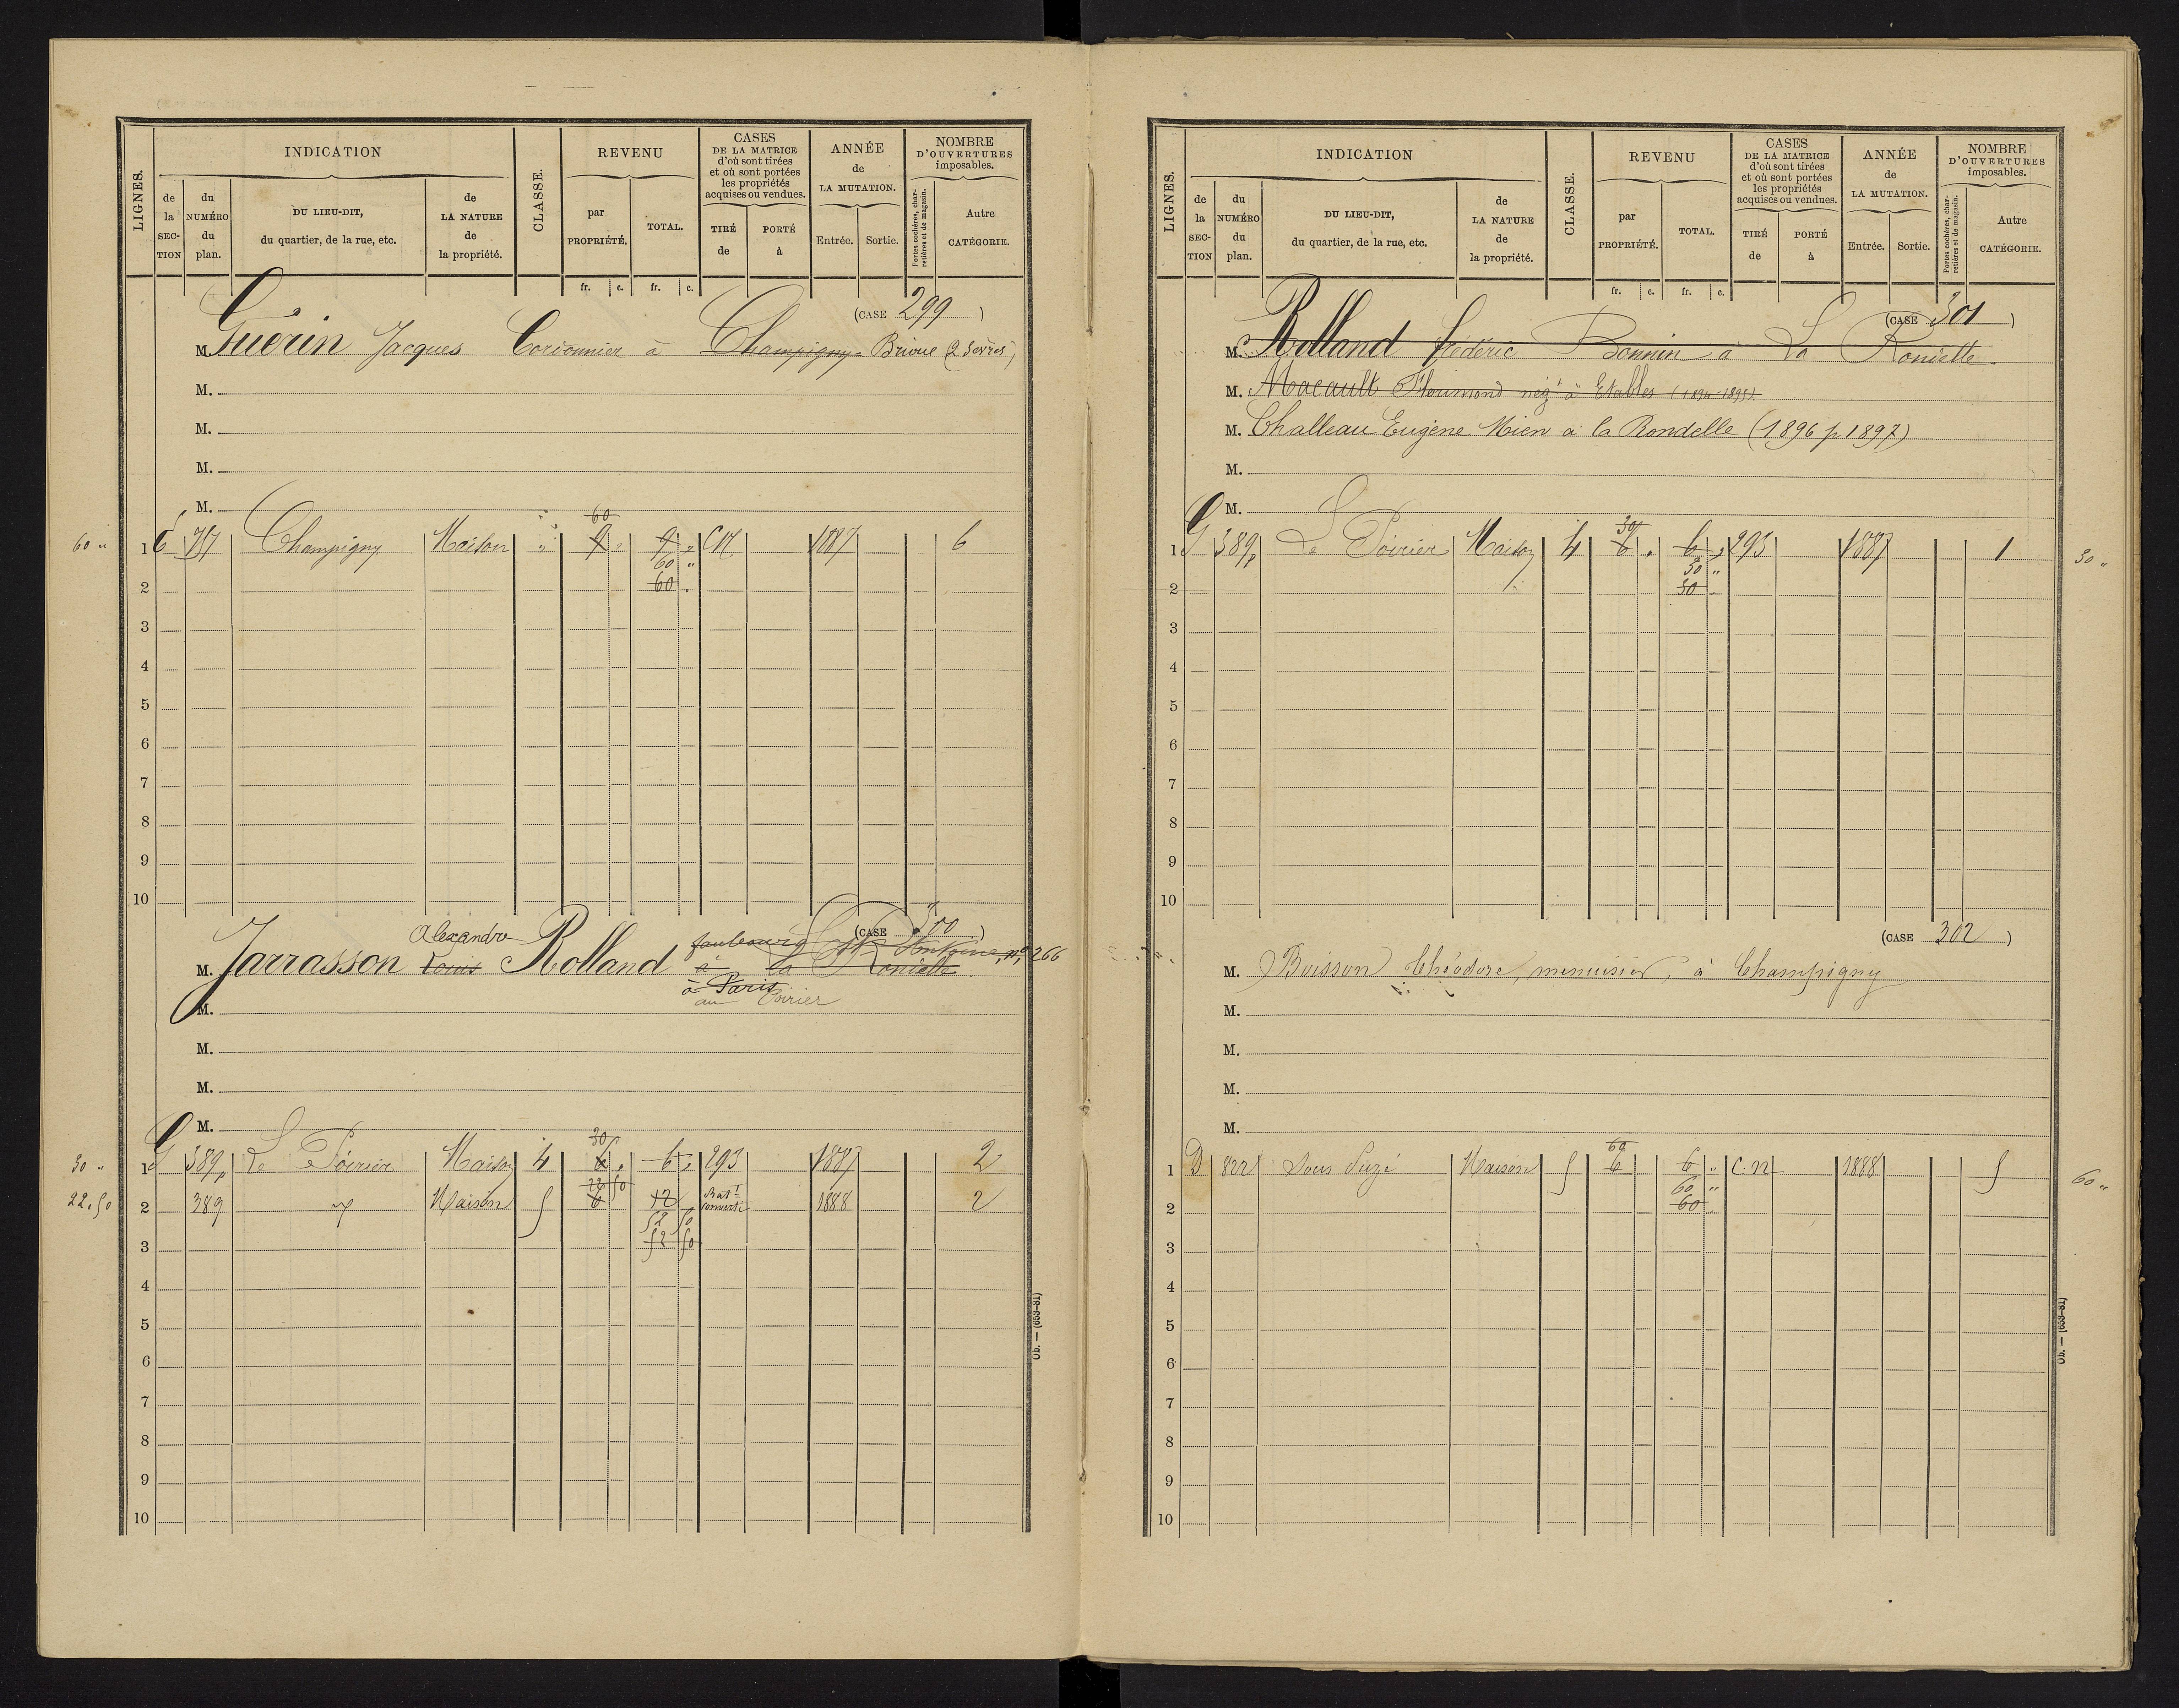 LIGNES.
INDICATION
de la SECTION
du NUMÉRO du plan.
DU LIEU-DIT, du quartier, de la rue, etc.
de LA NATURE de la propriété.
CLASSE.
REVENU
par PROPRIÉTÉ.
TOTAL.
CASES DE LA MATRICE d'où sont tirées et où sont portées les propriétés acquises ou vendues.
TIRÉ de
PORTÉ à
ANNÉE de LA MUTATION.
Entrée.
Sortie.
NOMBRE D'OUVERTURES imposables.
Portes cochères, charretières et de magasin.
Autre CATÉGORIE.
fr. c. fr. c.
(CASE 299)
M. Guérin Jacques Cordonnier à Champigny Brioux (2 Sèvres)
M.
M.
M.
M.
60
60 „ 1 E 717 Champigny Maison „ 9 „ 9 „ C N 1887 6
60 „
2 60 .
3
4
5
6
7
8
9
10
(CASE 300)
Alexandre faubourg St Antoine, n° 266
M. Jarrasson Louis Rolland à la Rondelle
à Paris
M. au Poirier
M.
M.
M.
30
30 „ 1 G 389p Le Poirier Maison 4 6 „ 6 „ 293 1887 2
22 50
22.50 2 389 Maison 5 6 12 Batt converti 1888 2
52 50
3 52 50
4
5
6
7
8
9
10
Ob. — (653-81)
LIGNES.
INDICATION
de la SECTION
du NUMÉRO du plan.
DU LIEU-DIT, du quartier, de la rue, etc.
de LA NATURE de la propriété.
CLASSE.
REVENU
par PROPRIÉTÉ.
TOTAL.
CASES DE LA MATRICE d'où sont tirées et où sont portées les propriétés acquises ou vendues.
TIRÉ de
PORTÉ à
ANNÉE de LA MUTATION.
Entrée.
Sortie.
NOMBRE D'OUVERTURES imposables.
Portes cochères, charretières et de magasin.
Autre CATÉGORIE.
fr. c. fr. c.
(CASE 301)
M. Rolland frédéric Bonnin à La Rondelle
M. Macault Floumond négt à Etables (1894-1895)
M. Challeau Eugène Mien à la Rondelle (1896 p 1897)
M.
M.
30
1 G 389p Le Poirier Maison 4 6 . 6 „ 293 1887 1 30 „
30 „
2 30
3
4
5
6
7
8
9
10
(CASE 302)
M. Buisson Théodore, menuisier, à Champigny
M.
M.
M.
M.
60
1 D 822 Sous Suzé Maison 5 6 6 „ C.N 1888 5 60 „
60 „
2 60
3
4
5
6
7
8
9
10
Ob. — (653-81)